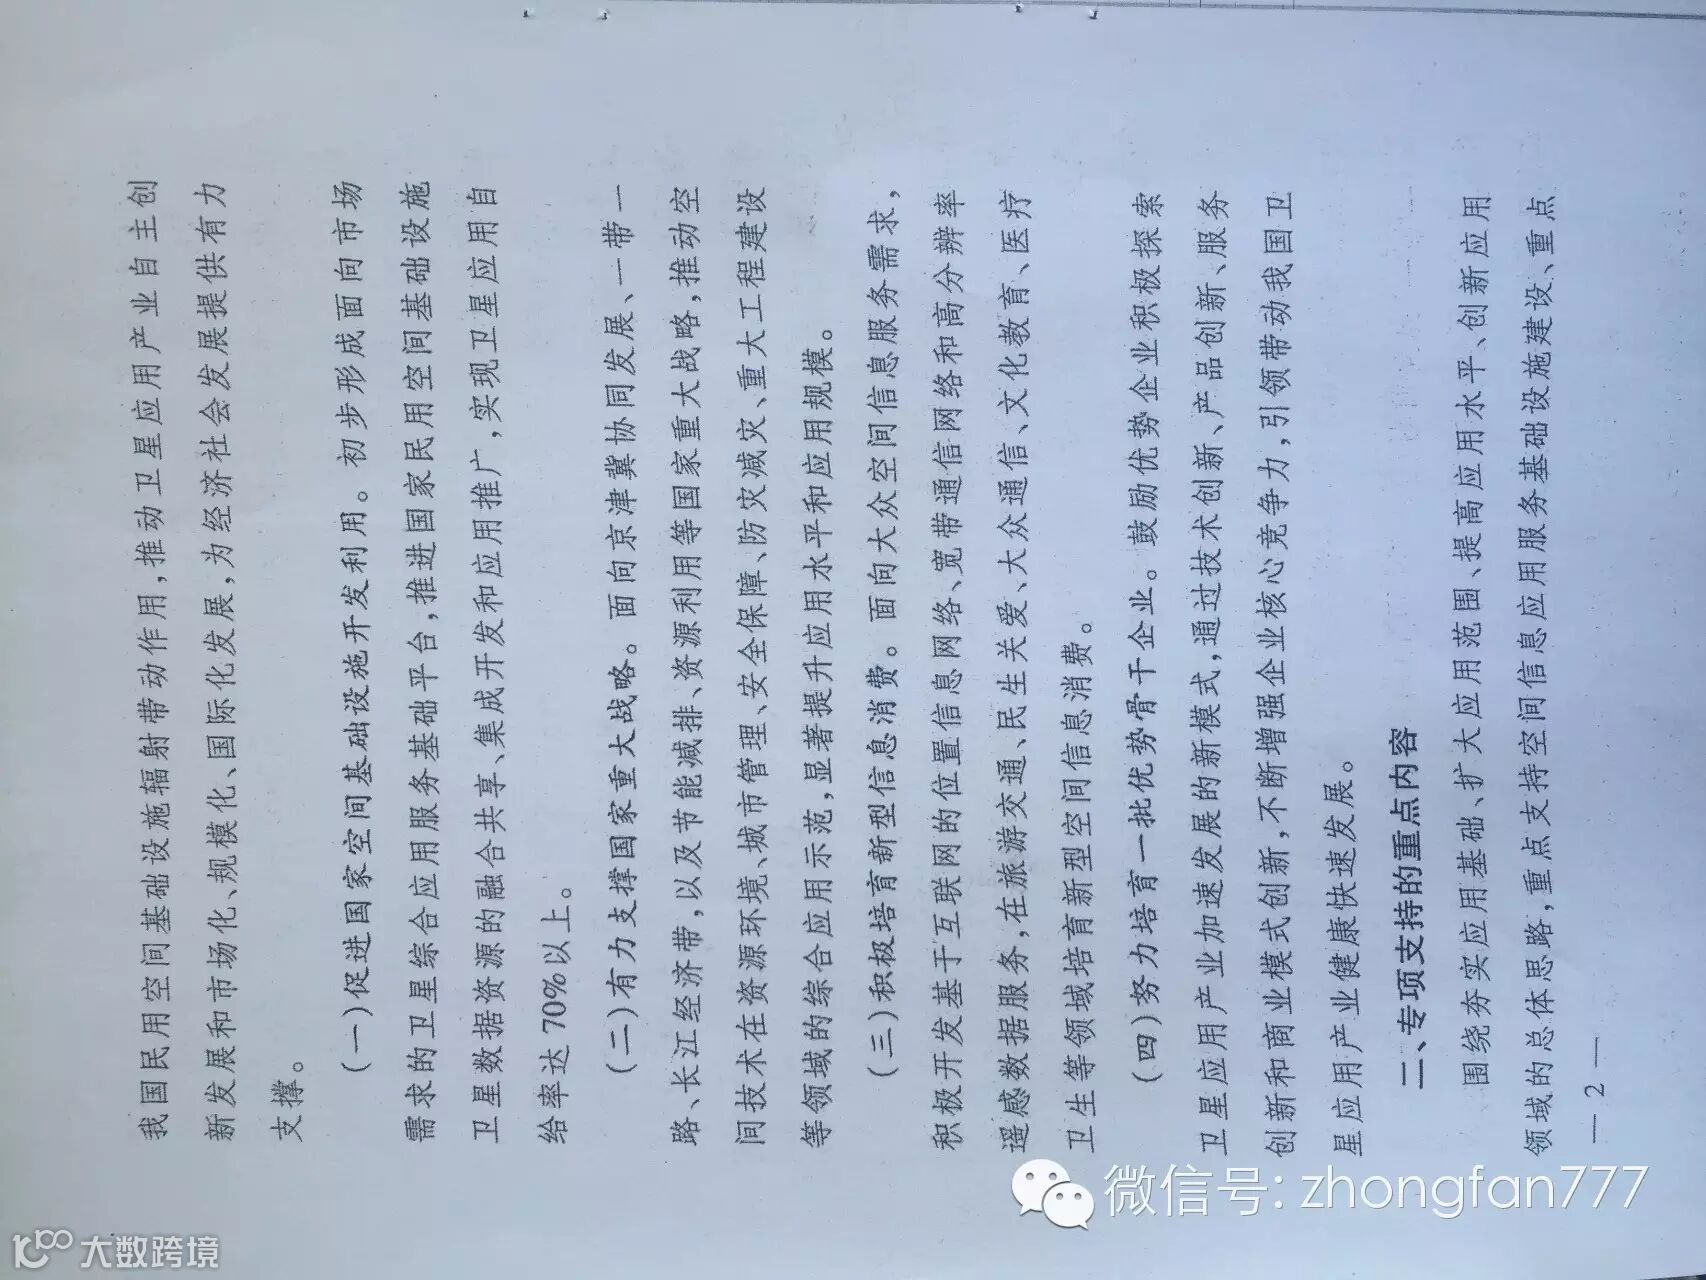 我国民用空间基础设施辐射带动作用,推动卫星应用产业自主创
新发展和市场化、规模化、国际化发展,为经济社会发展提供有力
支撑。
(一)促进国家空间基础设施开发利用。初步形成面向市场
需求的卫星综合应用服务基础平台,推进国家民用空间基础设施
卫星数据资源的融合共享、集成开发和应用推广,实现卫星应用自
给率达70%以上。
(二)有力支撑国家重大战略。面向京津冀协同发展、一带一
路、长江经济带,以及节能减排、资源利用等国家重大战略,推动空
间技术在资源环境、城市管理、安全保障、防灾减灾、重大工程建设
等领域的综合应用示范,显著提升应用水平和应用规模。
(三)积极培育新型信息消费。面向大众空间信息服务需求,
积极开发基于互联网的位置信息网络、宽带通信网络和高分辨率
遥感数据服务,在旅游交通、民生关爱、大众通信、文化教育、医疗
卫生等领域培育新型空间信息消费。
(四)努力培育一批优势骨干企业。鼓励优势企业积极探索
卫星应用产业加速发展的新模式,通过技术创新、产品创新、服务
创新和商业模式创新,不断增强企业核心竞争力,引领带动我国卫
星应用产业健康快速发展。
二、专项支持的重点内容
围绕夯实应用基础、扩大应用范围、提高应用水平、创新应用
领域的总体思路,重点支持空间信息应用服务基础设施建设、重点
— 2 —
微信号: zhongfan777
大数跨境